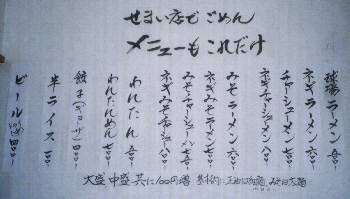 せまい店でごめん
メニューもこれだけ
ラーメン 五〇〇
ネギラーメン 六〇〇
チャーシューメン 七〇〇
ネギチャーシューメン 八〇〇
みそラーメン 六〇〇
ネギみそラーメン 七〇〇
みそチャーシュー 八〇〇
ネギみそチャーシュー 八〇〇
わんたん 五〇〇
わんたんめん 七〇〇
餃子(ギョーザ) 四〇〇
半ライス 一〇〇
ビール 四〇〇
大盛 中盛 共に100円増